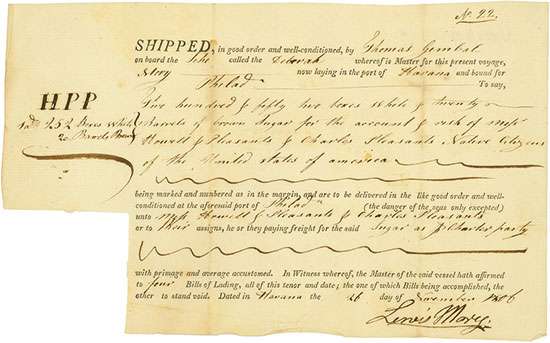 No. 22.
SHIPPED, in good order and well-conditioned, by Thomas Gimbal
on board the Schr called the Deborah whereof is Master for this present voyage,
now laying in the port of Havana and bound for
Philada To say,
HPP
252 Boxes White
20 Barrels Brown
Two hundred & fifty two boxes White & twenty
Barrels of brown Sugar for the account & risk of mess
Howell & Pleasants & Charles Pleasants Native Citizens
of the United states of america
being marked and numbered as in the margin, and are to be delivered in the like good order and well-
conditioned at the aforesaid port of Philada (the danger of the seas only excepted)
unto mess Howell & Pleasants & Charles Pleasants
or to their assigns, he or they paying freight for the said Sugar as p Charter party
with primage and average accustomed. In Witness whereof, the Master of the said vessel hath affirmed
to four Bills of Lading, all of this tenor and date; the one of which Bills being accomplished, the
other to stand void. Dated in Havana the 26 day of November 1806
Lewis Morey.